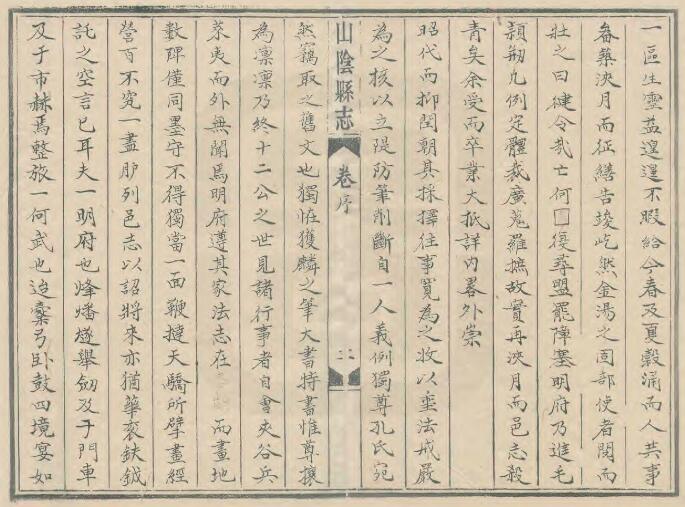 一區生靈益遑遑不暇給今春及夏穀涌而人共事
畚築浹月而征繕告竣屹然金湯之固部使者閱而
壯之曰健令哉亡何□復尋盟罷障塞明府乃進毛
穎剏凡例定體裁廣蒐羅摭故實再浹月而邑志殺
青矣余受而卒業大抵詳內畧外崇
昭代而抑閏朝其採擇往事寬為之收以垂法戒嚴
為之核以立隄防筆削斷自一人義例獨尊孔氏宛
山陰縣志
卷序
二
然竊取之舊文也獨恠獲麟之筆大書特書惟尊攘
為凜凜乃終十二公之世見諸行事者自會夾谷兵
萊夷而外無聞焉明府遵其家法志在 而畫地
數碑僅同墨守不得獨當一面鞭撻天驕所擘畫經
營百不究一盡臚列邑志以詔將來亦猶華袞鈇鉞
託之空言已耳夫一明府也烽燔燧舉劒及于門車
及于市赫焉整旅一何武也迨櫜弓臥鼓四境宴如